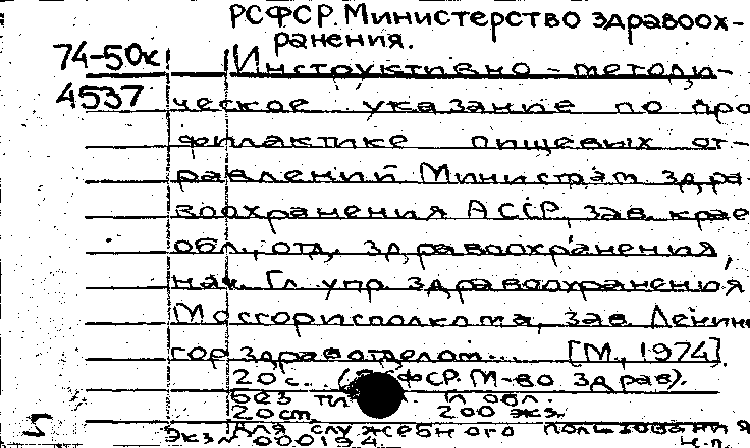 РСФСР. Министерство здравоох-
ранения.
74-50к Инструктивно-методи-
4537 ческое указание по про
филактике пищевых от-
равлений Министрам здра
воохранения АССР, зав. крае
обл., отд. здравоохранения,
нач. Гл. упр. здравоохранения
Мосгорисполкома, зав. Ленин
горздравотделом... [М., 1974].
20 с. ( ФСР. М-во здрав).
Без П обл.
20 см 200 экз.
Для служебного пользования
Экз. 000194 Н.п.